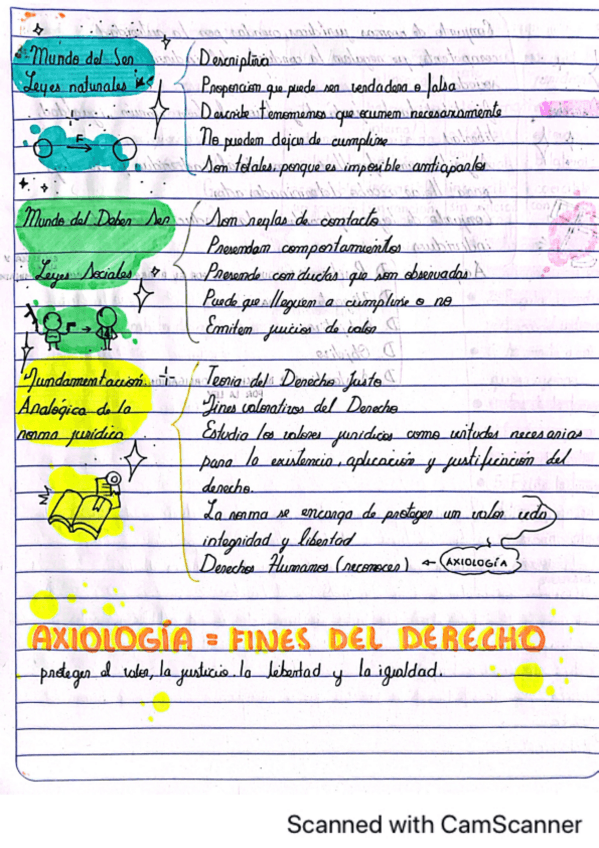 Mundo del Ser
Leyes naturales
Descriptiva
Proporcion que puede ser verdadera o falsa
Describe fenomenos que ocurren necesariamente
No pueden dejar de cumplirse
Son totales, porque es imposible
F
Mundo del Deber Ser
Leyes Sociales
Son reglas de contacto
Presendam comportamientos
Presende conductas que son observadas
Puede que lleguen a cumplirse o no
Emiten juicios de valor
Fundamentación
Analógica de la
norma jurídica
Teoria del Derecho Justo
Fines valorativos del Derecho
Estudia los valores juridicos como virtudes necesarias
para la existencia, aplicación y justificación del
derecho.
La norma se encarga de proteger un valor vida
integridad y libertad
Derechos Humanos (reconoces) ← AXIOLOGÍA
AXIOLOGÍA = FINES DEL DERECHO
proteger el valor, la justicia. la libertad y la igualdad.
Scanned with CamScanner